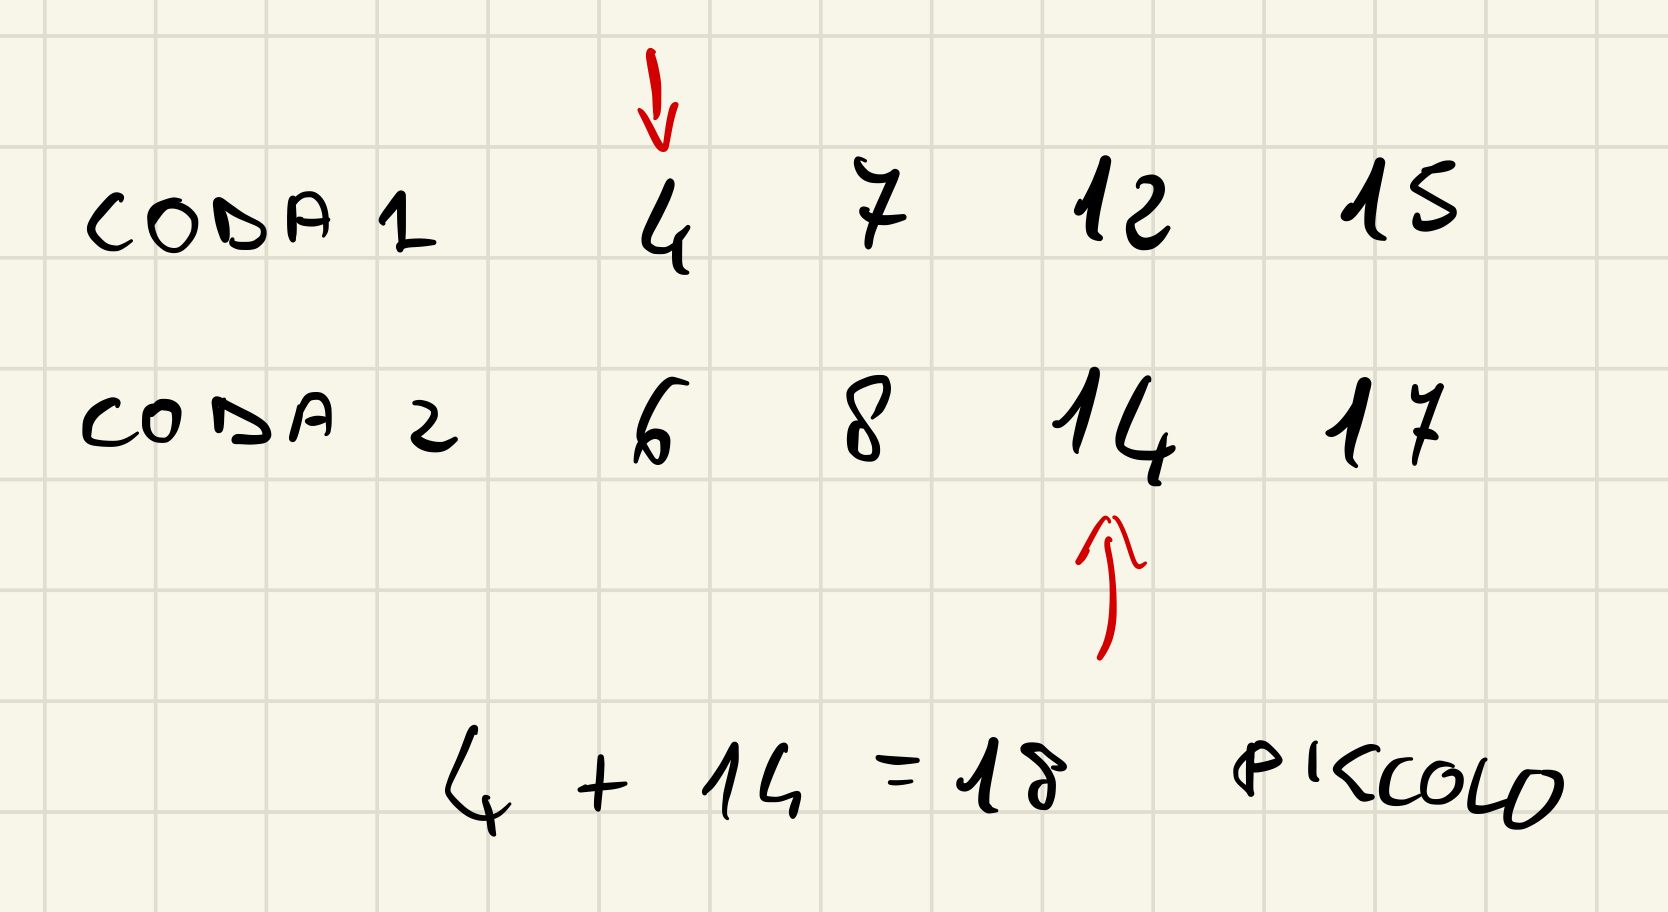 CODA 1 4 7 12 15
CODA 2 6 8 14 17
4 + 14 = 18 PICCOLO